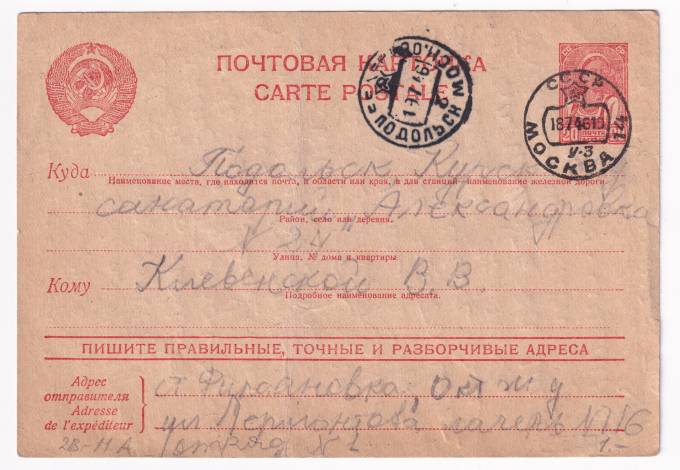 ПОЧТОВАЯ КАРТОЧКА
CARTE POSTALE
ПОДОЛЬСК МОСК.ОБЛ.
СССР
1874610
У-3
МОСКВА 14
20
ПОЧТА
Куда Подольск Курск
Наименование места, где находится почта, и области или края, а для станций наименование железной дороги
санаторий „Александровка
Район, село или деревня.
Улица, № дома и квартиры
Кому Клевенской В. В.
Подробное наименование адресата.
ПИШИТЕ ПРАВИЛЬНЫЕ, ТОЧНЫЕ И РАЗБОРЧИВЫЕ АДРЕСА
Адрес отправителя
Adresse de l'expéditeur
ст Фирсановка, Окт ж д
ул Лермонтова лагерь №16
отряд № 1
28-11А
1.-